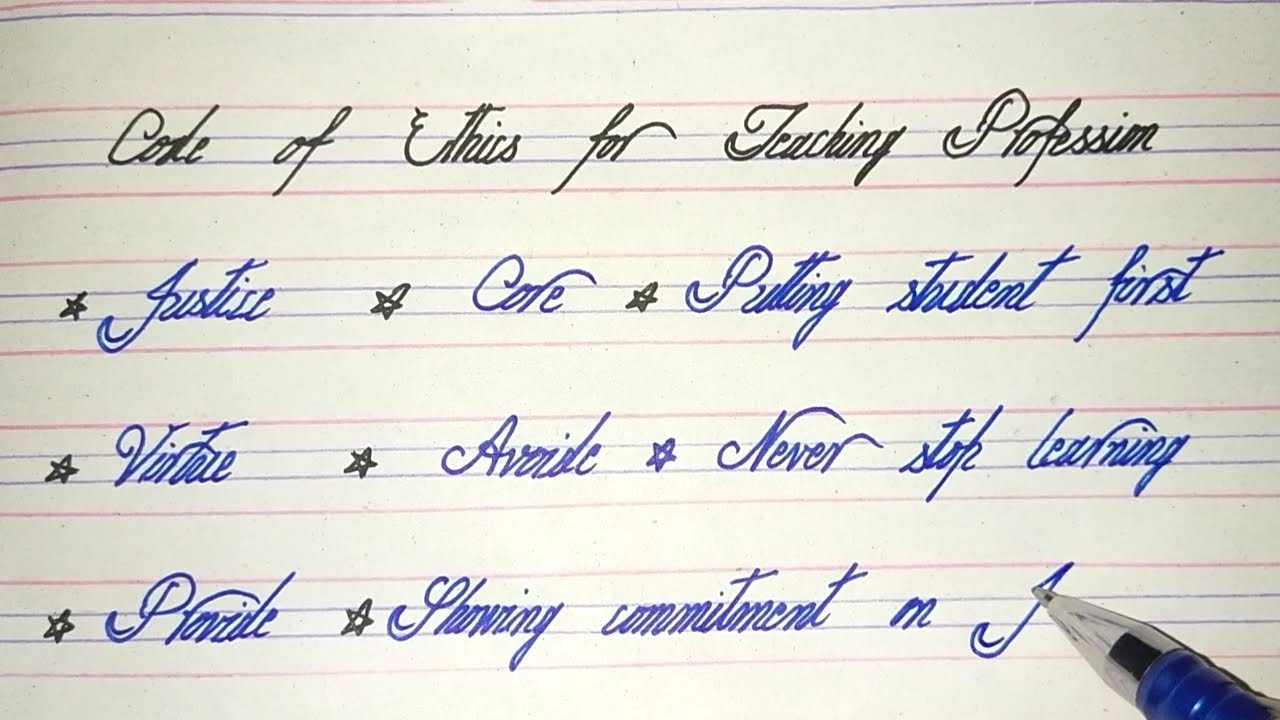 Code of Ethics for Teaching Profession
☆ Justice ☆ Core ☆ Putting student first
☆ Virtue ☆ Avoide ☆ Never stop learning
☆ Provide ☆ Showing commitment on